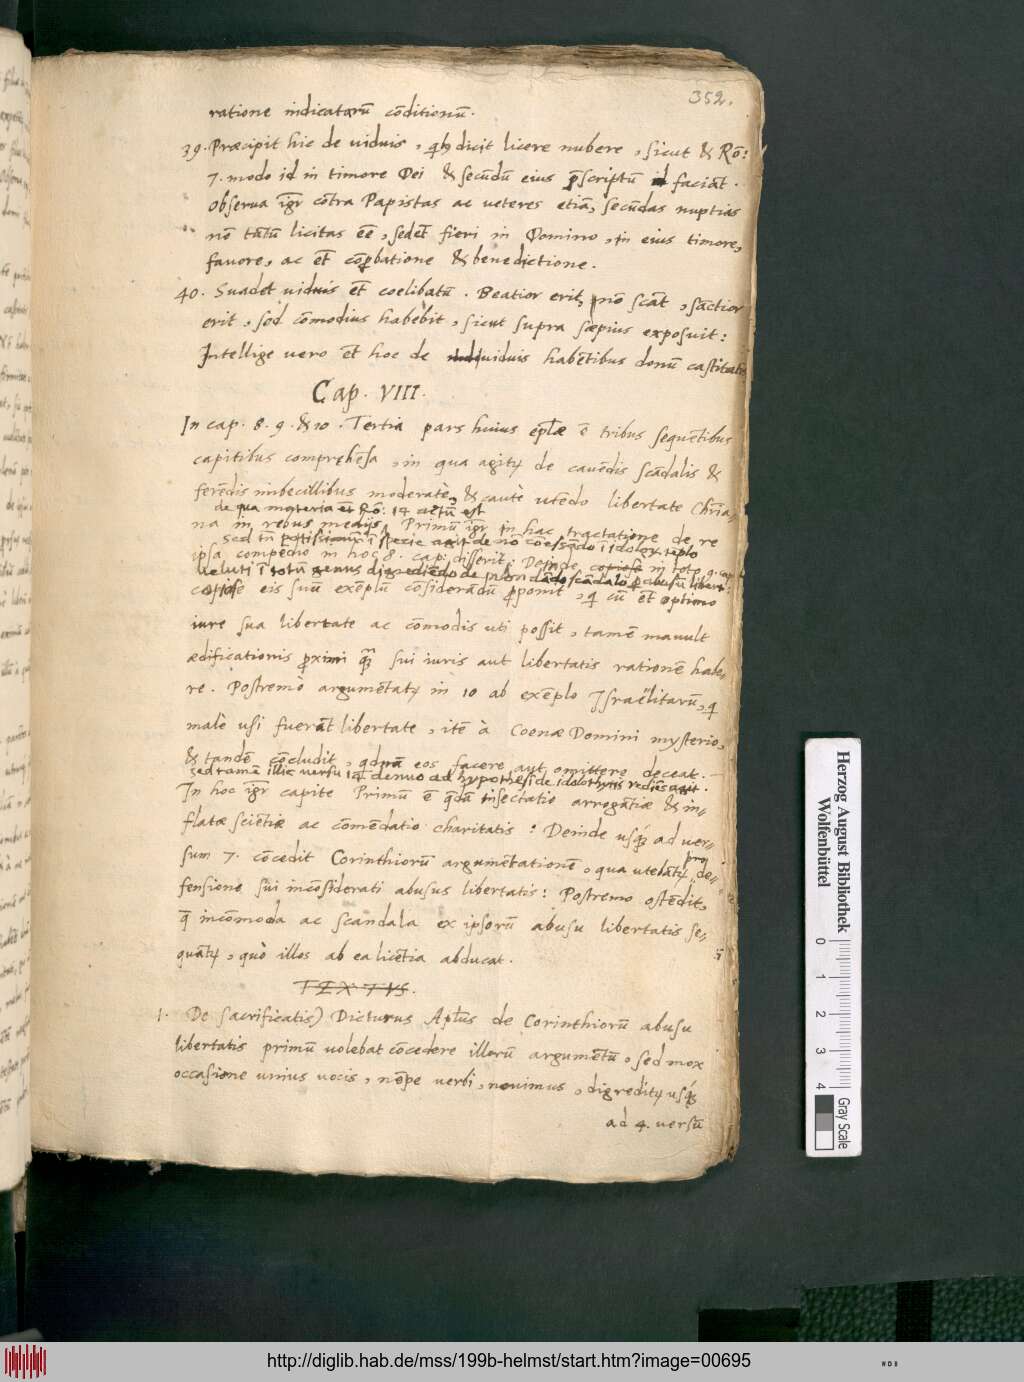 352.
ratione indicatarū cōditionū.
39. Præcipit hic de viduis, dicit licere nubere, sicut & Rō:
7. modo id in timore Dei & secūdū eius p̄scriptū faciāt.
Observa igr̄ cōtra Papistas ac veteres etiā, secūdas nuptias
nō tātū licitas eē, sed et̄ fieri in Domino, in eius timore,
favore, ac et̄ cōp̱batione & benedictione.
40. Suadet viduis et̄ coelibatū. Beatior erit, nō scāt, sāctior
erit, sed cōmodius habebit, sicut supra sæpius exposuit:
Intellige vero et̄ hoc de viduis habētibus donū castitatis
Cap. VIII.
In cap. 8. 9. & 10. Tertia pars huius ep̄læ ē tribus sequētibus
capitibus comprehēsa, in qua agitꝶ de cavēdis scādalis &
ferēdis imbecillibus moderatè, & cautè utēdo libertate Chr̄ia-
de qua materia et̄ Rō: 14 actū est
na in rebus medijs. Primū igr̄ in hac tractatione de re
sed tn̄ potissimū ī specie agit de nō comessādo ī idoley tēplo
ipsa compēdio in hoc 8. cap: disserit: Deinde copiose in toto 9. cap
veluti ī totū genus digrediēdo de scādalo p̱ abusū libert:
copiose eis suū exēplū cōsiderādū p̱ponit, q̄ cū et̄ optimo
iure sua libertate ac cōmodis uti possit, tamē mavult
ædificationis proximi quā sui iuris aut libertatis rationē habe-
re. Postremò argumētatꝶ in 10 ab exēplo Israëlitarū, q̄
malè usi fuerāt libertate, itē à Coenæ Domini mysterio,
& tandē cōcludit, qdnā eos facere aut omittere deceat.
sed tamē illic versu 14 denuo ad hypothesī de idolothytis rediēs agit.
In hoc igr̄ capite Primū ē quædā insectatio arrogātiæ & in-
flatæ sciētiæ ac cōmēdatio charitatis: Deinde usq́ꝫ ad ver-
sum 7. cōcedit Corinthiorū argumētationē, qua utebātꝶ pro de-
fensione sui incōsiderati abusus libertatis: Postremo ostēdit,
q̄ incōmoda ac scandala ex ipsorū abusu libertatis se-
quātꝶ, quò illos ab ea licētia abducat.
TEXTVS.
1. De sacrificatis) Dicturus Apl̄us de Corinthiorū abusu
libertatis primū volebat cōcedere illorū argumētū, sed mox
occasione unius vocis, nēpe verbi, novimus, digreditꝶ usq́ꝫ
ad 4. versū
Herzog August Bibliothek
Wolfenbüttel
0 1 2 3 4
Gray Scale
http://diglib.hab.de/mss/199b-helmst/start.htm?image=00695
WDB